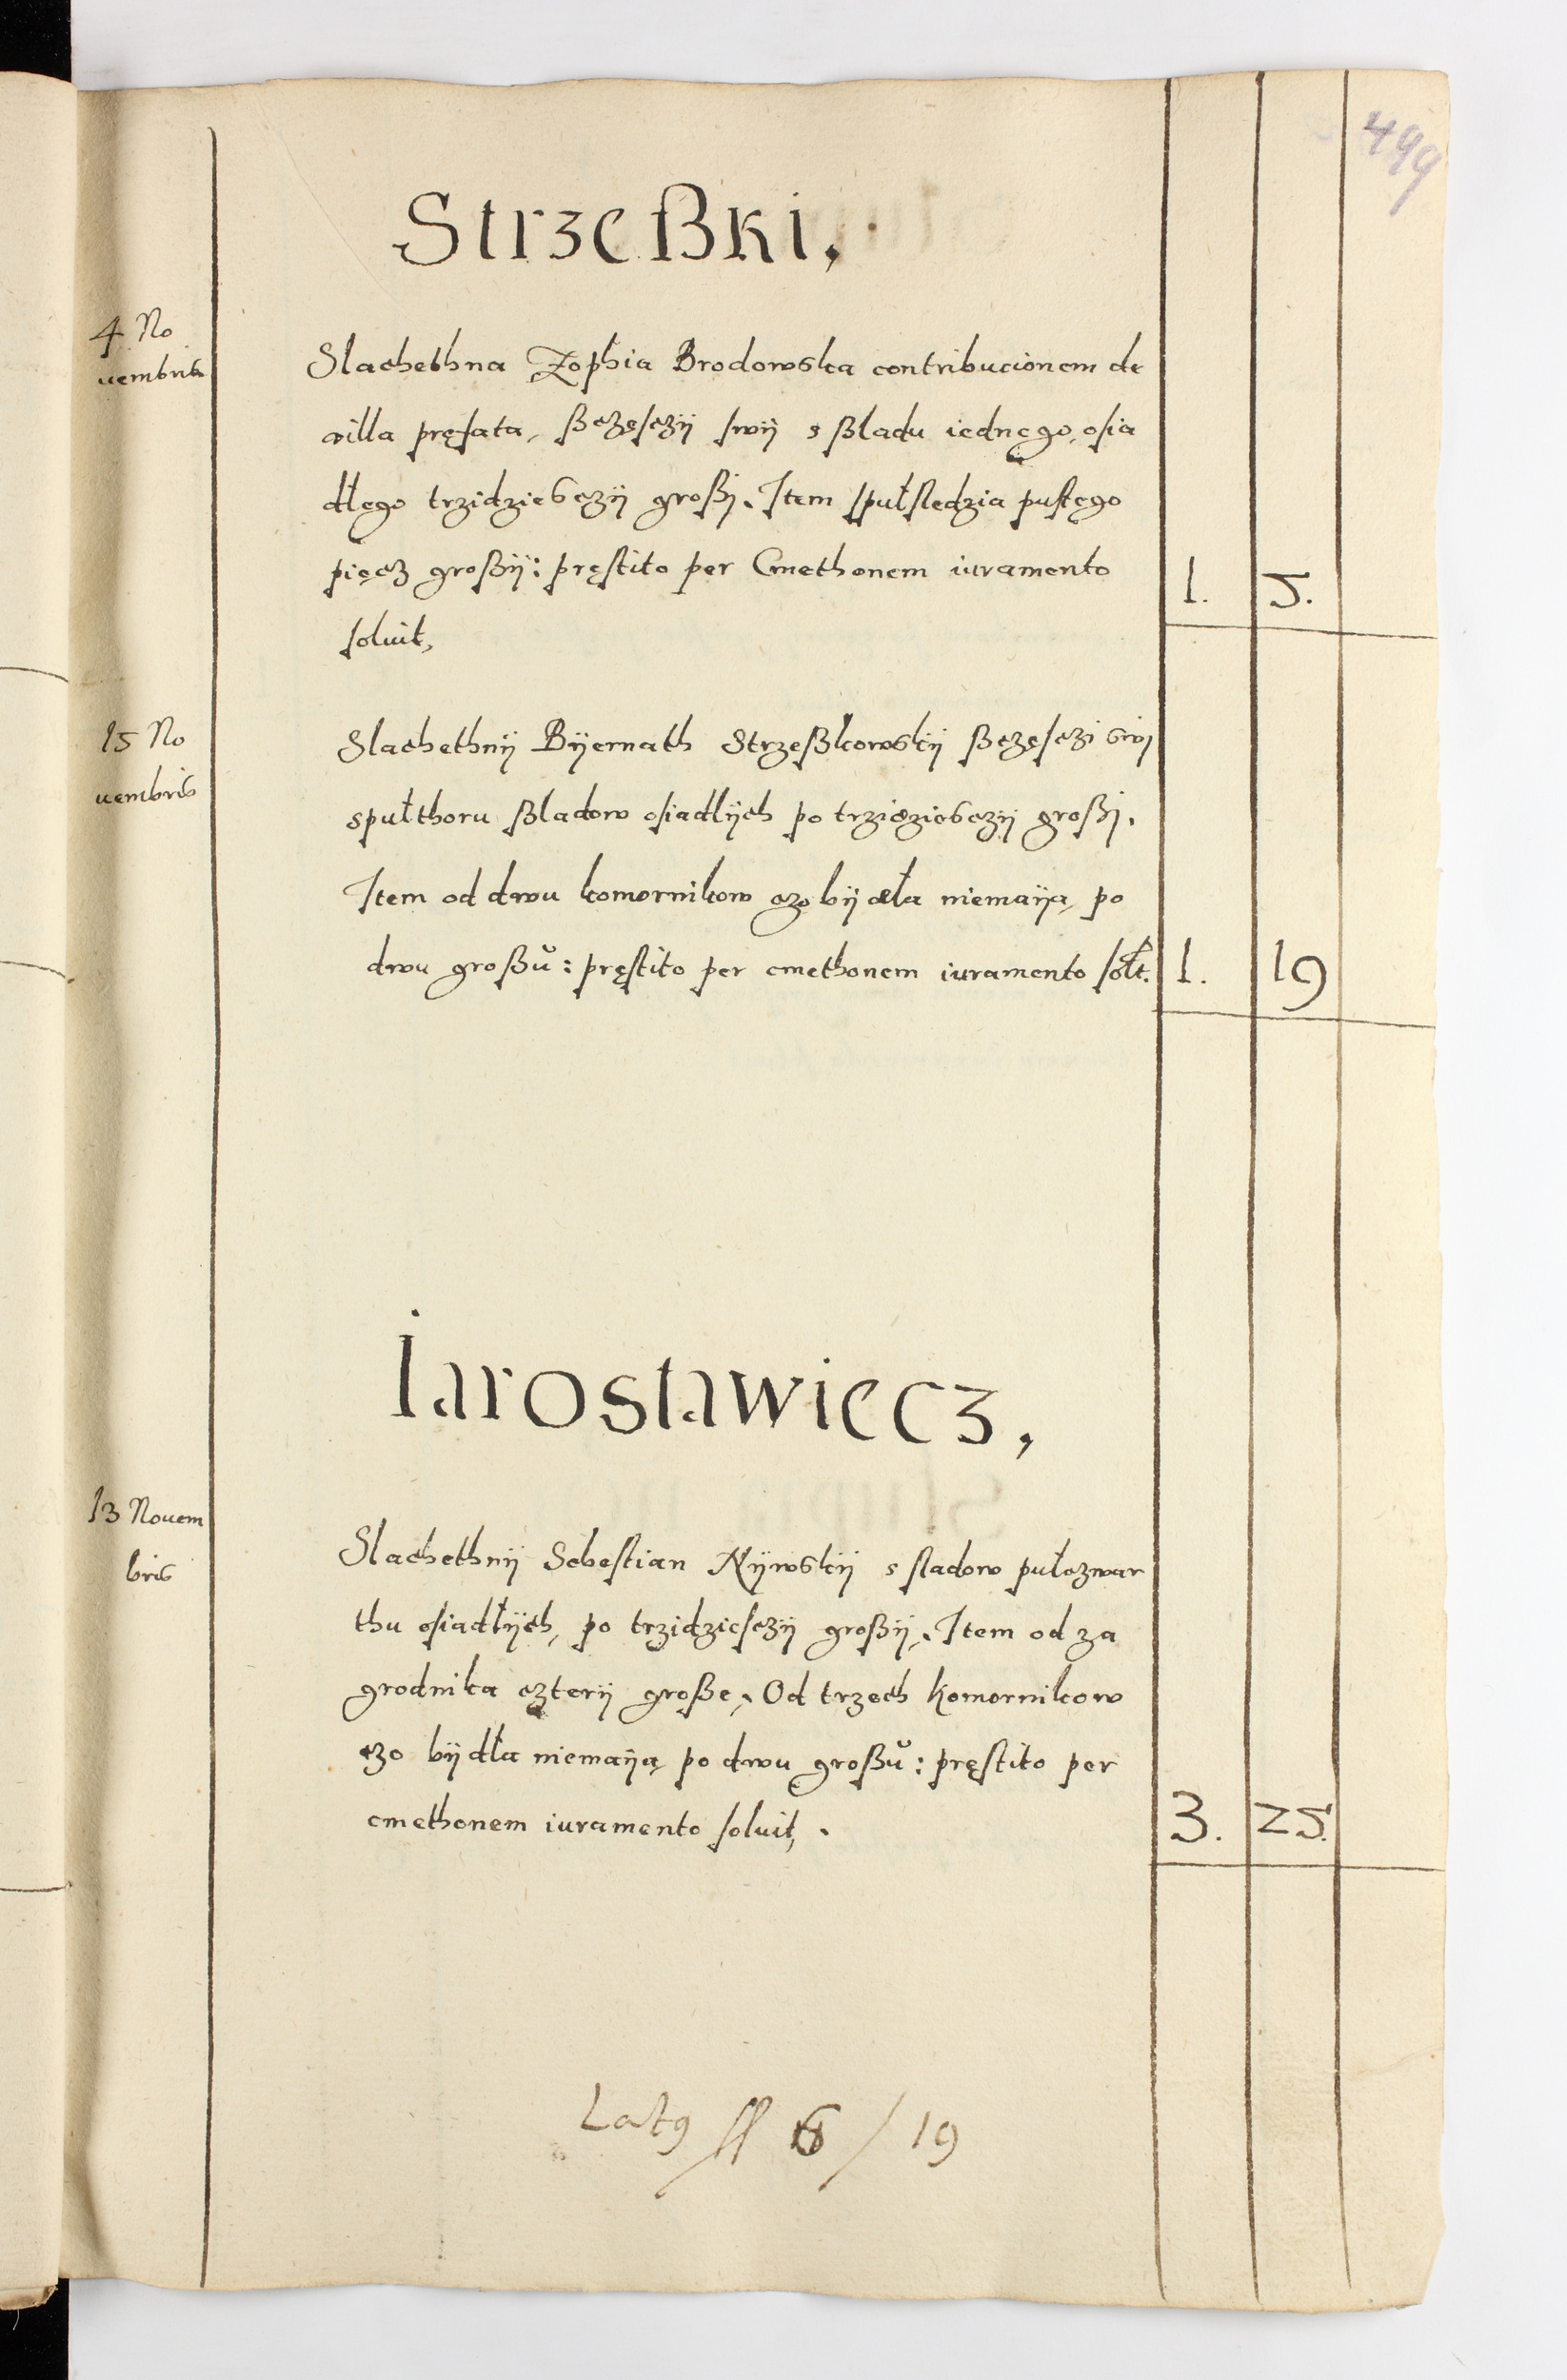 499
Strzeßki,
4 No
uembris
Slachethna Zophia Brodowska contribucionem de
villa pręfata, ßczęsczÿ swÿ s ßladu iednęgo, osia
dłęgo trzidziesczÿ großÿ. Item spułsledzia pustęgo
pięcz großÿ: pręstito per Cmethonem iuramento
soluit,
1. 5.
15 No
uembris
Slachethnÿ Bÿernath Strzeßkowskÿ ßczęsczi swÿ
spułthoru ßladow osiadlÿch po trzidziesczÿ großÿ.
Item od dwu komornikow czo bÿdła niemaÿą, po
dwu großŭ: pręstito per cmethonem iuramento solt.
1. 19
Iarosławiecz,
13 Nouem
bris
Slachethnÿ Sebestian Nÿwskÿ s sladow pułczwar
thu osiadłÿch, po trzidziesczÿ großÿ, Item od za
grodnika czterÿ große, Od trzech Komornikow
czo bÿdła niemaÿą po dwu großŭ: pręstito per
cmethonem iuramento soluit,.
3. 25.
Lat9 fl 6 / 19